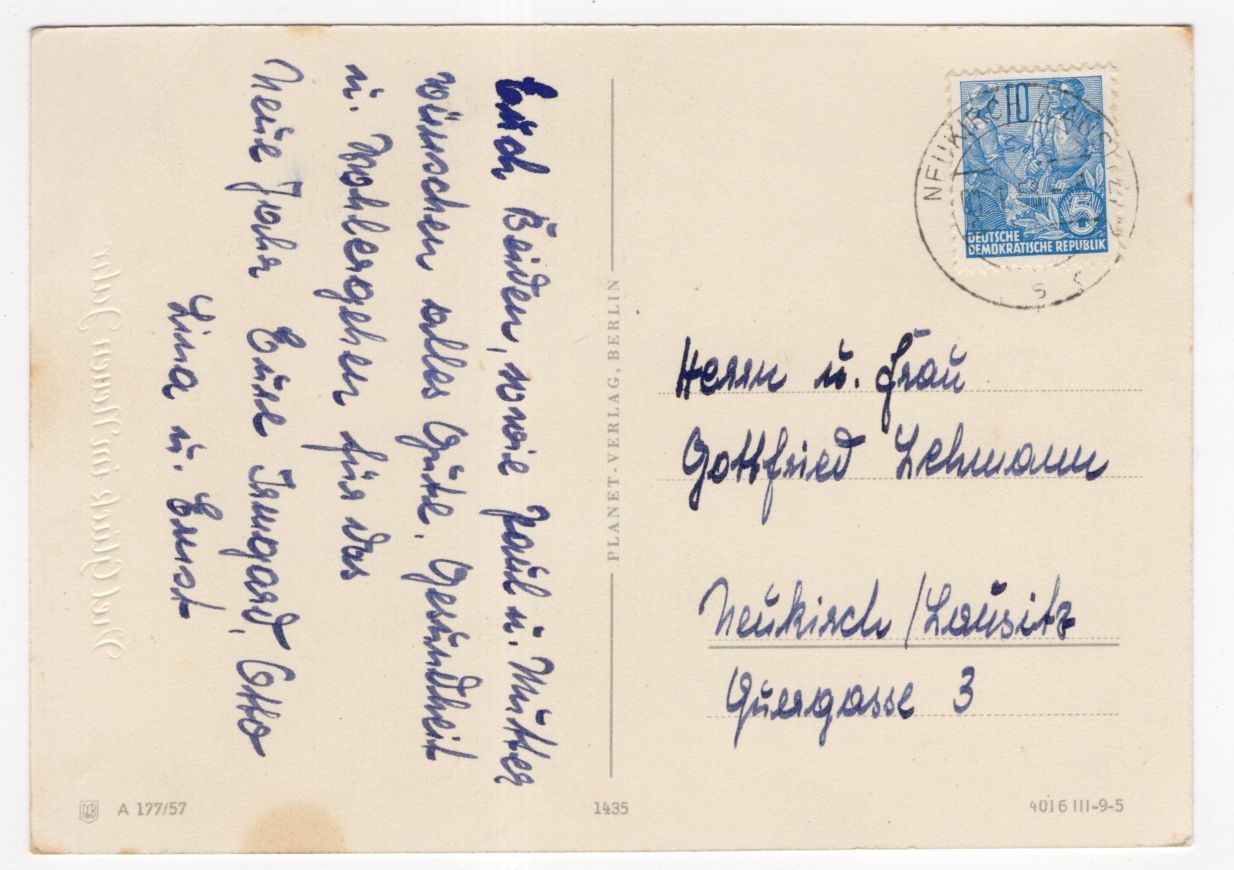 Euch Beiden, sowie Paul u. Mutter
wünschen alles Gute, Gesundheit
u. Wohlergehen für das
Neue Jahr Eure Irmgard, Otto
Lina u. Ernst
Viel Glück im Neuen Jahr
PLANET-VERLAG, BERLIN
NEUKIRCH (LAUSITZ)
10
5
DEUTSCHE
DEMOKRATISCHE REPUBLIK
s
Herrn u. Frau
Gottfried Lehmann
Neukirch/Lausitz
Quergasse 3
A 177/57
1435
4016 III-9-5